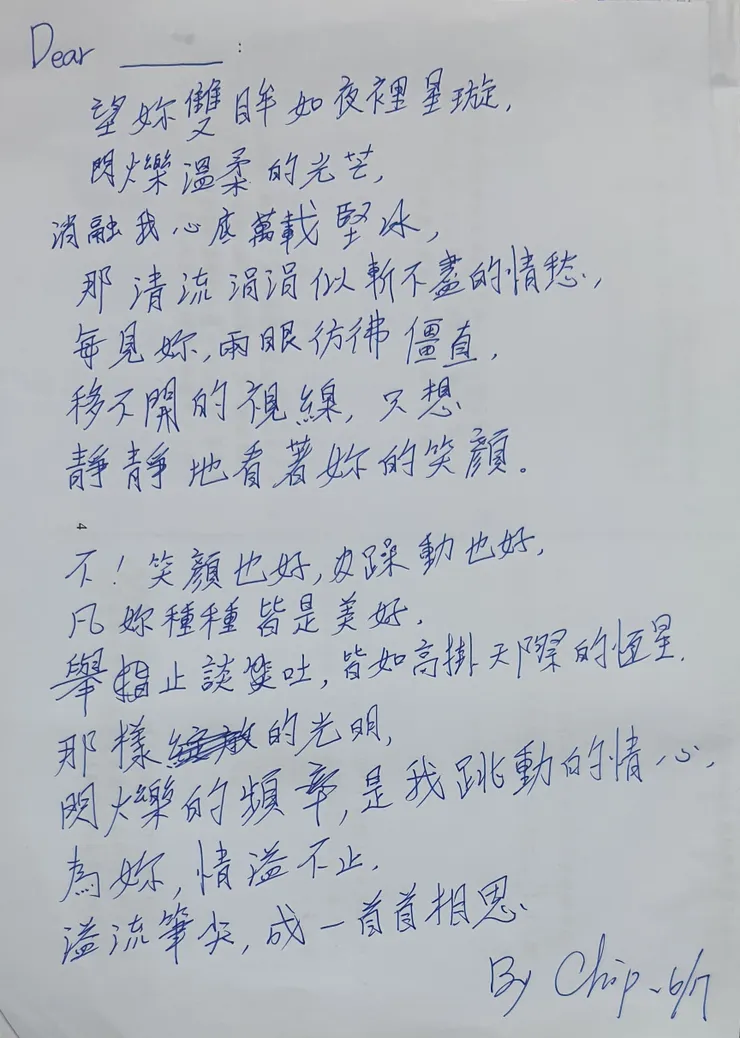 Dear ______ :
望妳雙眸如夜裡星璇,
閃爍溫柔的光芒,
消融我心底萬載堅冰,
那清流涓涓似斬不盡的情愁,
每見妳,兩眼彷彿僵直,
移不開的視線,只想
靜靜地看著妳的笑顏。
不!笑顏也好,皮躁動也好,
凡妳種種皆是美好.
舉指止談笑吐,皆如高掛天際的恆星.
那樣的光明,
閃爍的頻率,是我跳動的情心,
為妳,情溢不止.
溢流筆尖,成一首首相思、
By Chip. 6/7